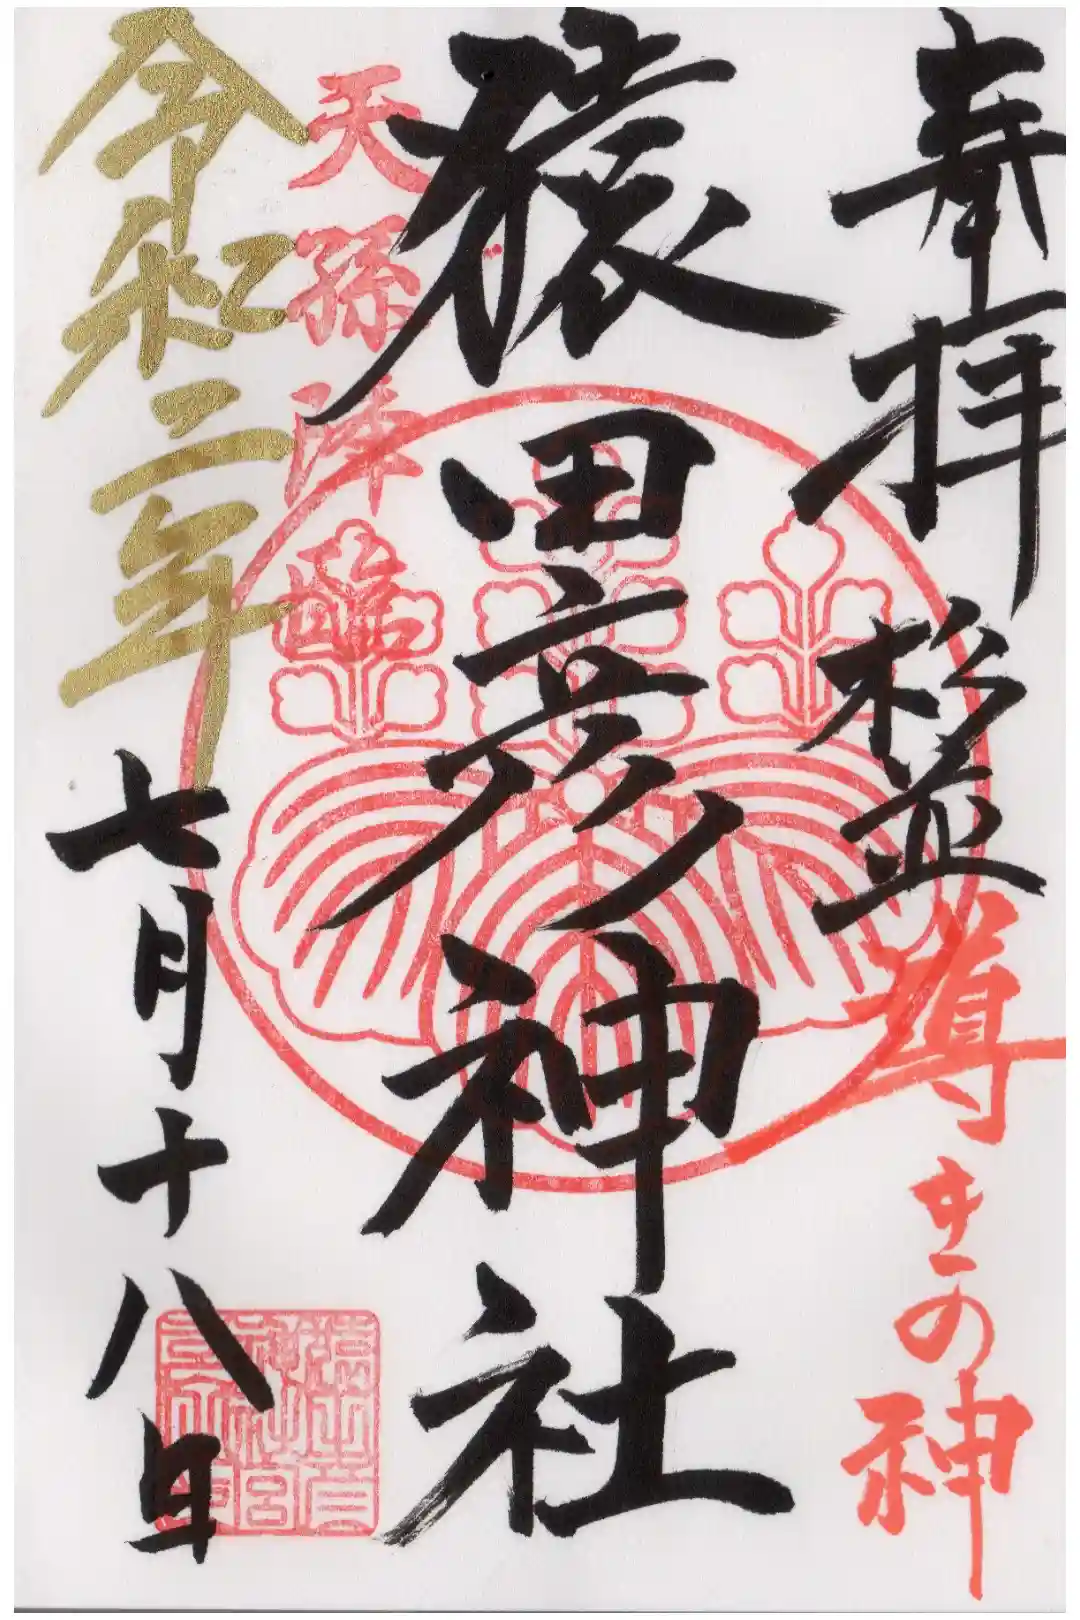 奉拝 杉並
導きの神
猿田彦神社
天孫降臨
令和三年
七月十八日